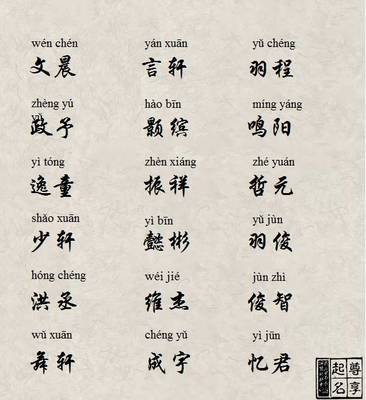 wén chén yán xuān yǔ chéng
文晨 言轩 羽程
zhèng yú hào bīn míng yáng
政予 颢缤 鸣阳
yì tóng zhèn xiáng zhé yuán
逸童 振祥 哲元
shǎo xuān yì bīn yǔ jùn
少轩 懿彬 羽俊
hóng chéng wéi jié jùn zhì
洪丞 维杰 俊智
wǔ xuān chéng yǔ yì jūn
舞轩 成宇 忆君
尊享
起名